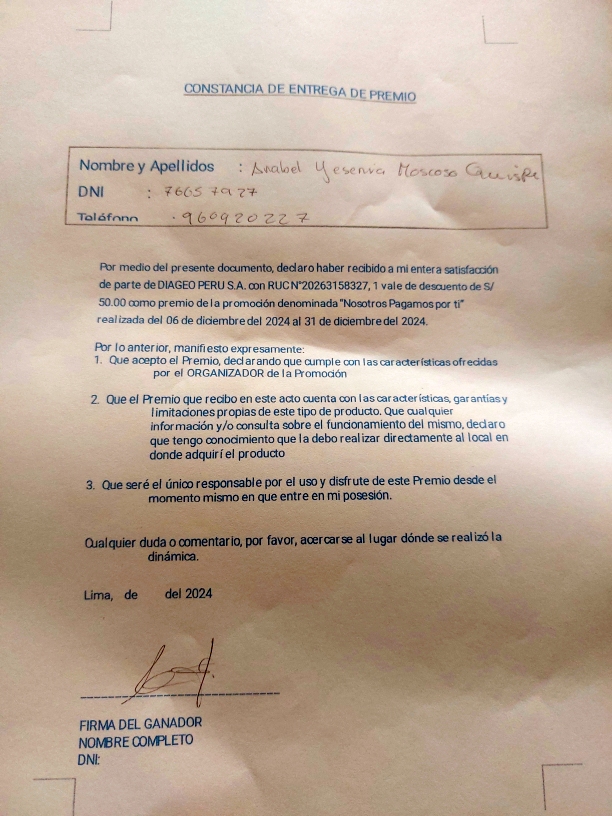 CONSTANCIA DE ENTREGA DE PREMIO
Nombre y Apellidos : Anabel Yesenia Moscoso Quispe
DNI : 76657927
Teléfono . 960920227
Por medio del presente documento, declaro haber recibido a mi entera satisfacción
de parte de DIAGEO PERU S.A. con RUC N°20263158327, 1 vale de descuento de S/
50.00 como premio de la promoción denominada "Nosotros Pagamos por ti"
realizada del 06 de diciembre del 2024 al 31 de diciembre del 2024.
Por lo anterior, manifiesto expresamente:
1. Que acepto el Premio, declarando que cumple con las características ofrecidas
por el ORGANIZADOR de la Promoción
2. Que el Premio que recibo en este acto cuenta con las características, garantías y
limitaciones propias de este tipo de producto. Que cualquier
información y/o consulta sobre el funcionamiento del mismo, declaro
que tengo conocimiento que la debo realizar directamente al local en
donde adquirí el producto
3. Que seré el único responsable por el uso y disfrute de este Premio desde el
momento mismo en que entre en mi posesión.
Cualquier duda o comentario, por favor, acercarse al lugar dónde se realizó la
dinámica.
Lima, de del 2024
FIRMA DEL GANADOR
NOMBRE COMPLETO
DNI: